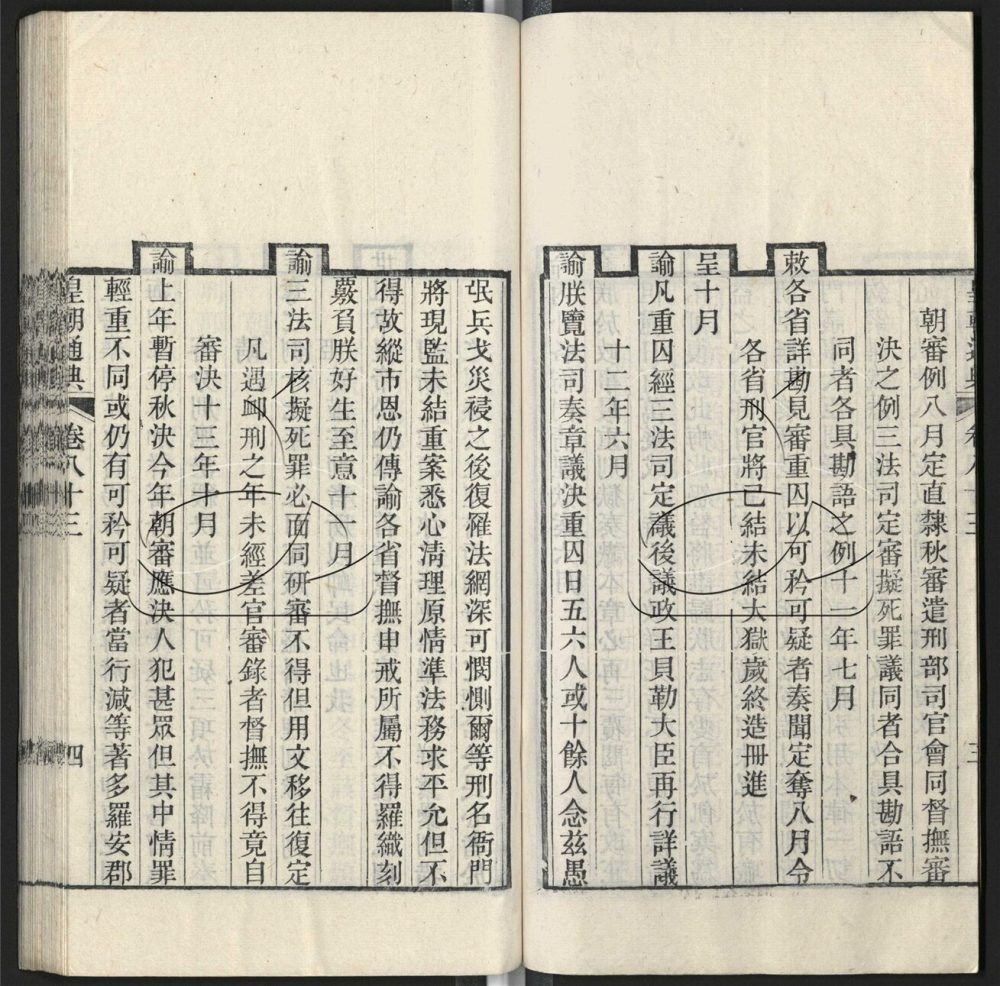 朝審例八月定直隸秋審遣刑部司官會同督撫審
決之例三法司定審擬死罪議同者合具勘語不
同者各具勘語之例十一年七月
敕各省詳勘見審重囚以可矜可疑者奏聞定奪八月令
各省刑官將已結未結大獄歲終造冊進
呈十月
諭凡重囚經三法司定議後議政王貝勒大臣再行詳議
十二年六月
諭朕覽法司奏章議決重囚日五六人或十餘人念茲愚
氓兵戈災祲之後復罹法網深可憫惻爾等刑名衙門
將現監未結重案悉心清理原情準法務求平允但不
得故縱市恩仍傳諭各省督撫申戒所屬不得羅織刻
覈負朕好生至意十一月
諭三法司核擬死罪必面同研審不得但用文移往復定
凡遇卹刑之年未經差官審錄者督撫不得竟自
審決十三年十月
諭上年暫停秋決今年朝審應決人犯甚眾但其中情罪
輕重不同或仍有可矜可疑者當行減等著多羅安郡
皇朝通典 卷八十三 四